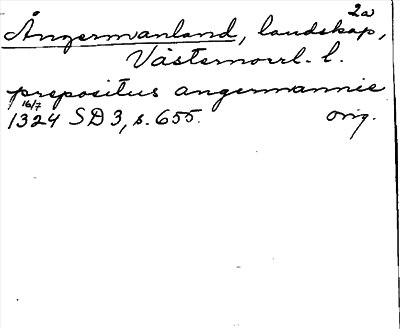 2a
Ångermanland, landskap,
Västernorrl. l.
prepositus angermannie
16/7
1324 SD 3, s. 655. orig.